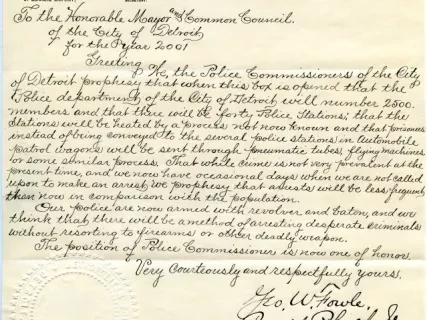 To the Honorable Mayor and Common Council.
of the City of Detroit
for the Year 2001
Greeting We, the Police Commissioners of the City
of Detroit prophesy that when this box is opened that the
Police department of the City of Detroit will number 2500.
members and that there will be forty Police Stations; that the
Stations will be heated by a process not now known and that prisoners
instead of being conveyed to the several police stations in Automobile
patrol wagons will be sent through pneumatic tubes, flying machines
or some similar process. That while crime is not very prevalent at the
present time, and we now have occasional days when we are not called
upon to make an arrest, we prophesy that arrests will be less frequent
than now in comparison with the population.
Our Police are now armed with revolver and baton, and we
think that there will be a method of arresting desperate criminals
without resorting to firearms or other deadly weapon.
The position of Police Commissioner is now one of honor.
Very Courteously and respectfully yours,
Geo. W. Fowle.